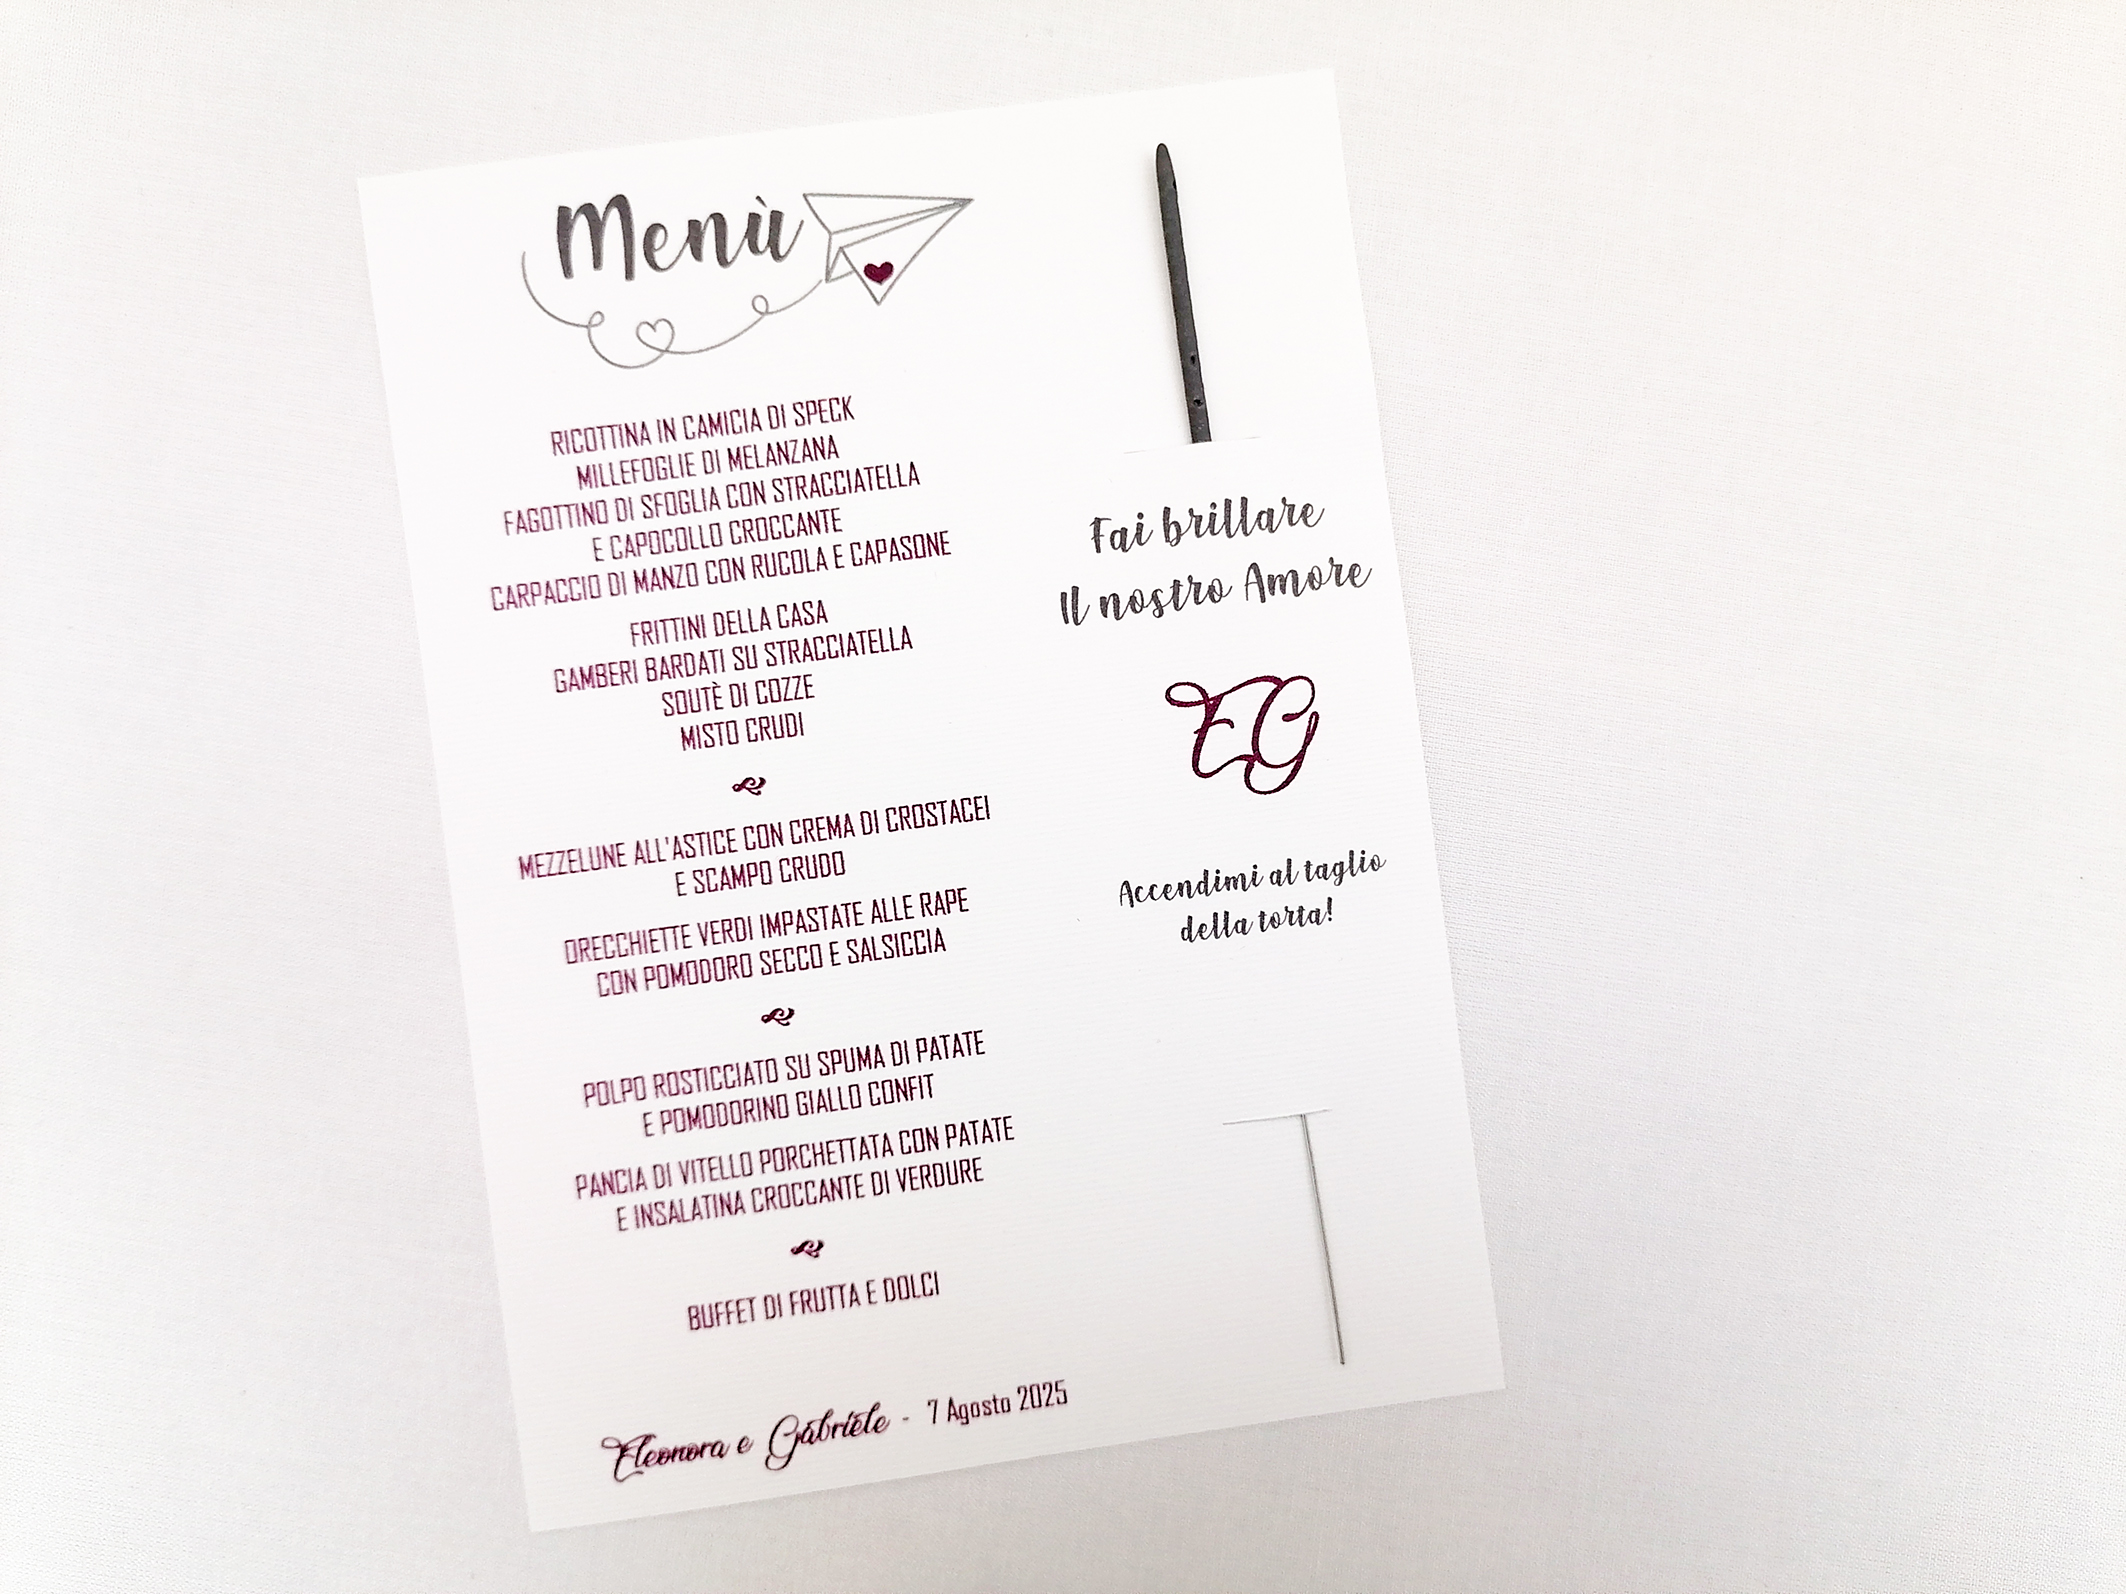 Menù
RICOTTINA IN CAMICIA DI SPECK
MILLEFOGLIE DI MELANZANA
FAGOTTINO DI SFOGLIA CON STRACCIATELLA
E CAPOCOLLO CROCCANTE
CARPACCIO DI MANZO CON RUCOLA E CAPASONE
FRITTINI DELLA CASA
GAMBERI BARDATI SU STRACCIATELLA
SOUTÈ DI COZZE
MISTO CRUDI
MEZZELUNE ALL'ASTICE CON CREMA DI CROSTACEI
E SCAMPO CRUDO
ORECCHIETTE VERDI IMPASTATE ALLE RAPE
CON POMODORO SECCO E SALSICCIA
POLPO ROSTICCIATO SU SPUMA DI PATATE
E POMODORINO GIALLO CONFIT
PANCIA DI VITELLO PORCHETTATA CON PATATE
E INSALATINA CROCCANTE DI VERDURE
BUFFET DI FRUTTA E DOLCI
Eleonora e Gabriele - 7 Agosto 2025
Fai brillare
Il nostro Amore
EG
Accendimi al taglio
della torta!